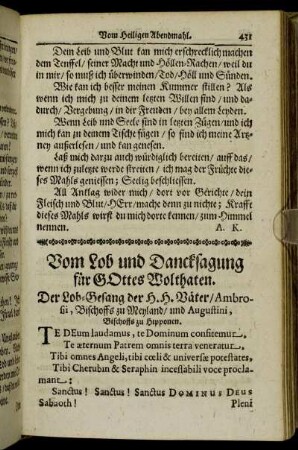 Vom Heiligen Abendmahl. 431
Dem Leib und Blut kan mich erschrecklich machen
dem Teuffel/ seiner Macht und Höllen-Rachen/ weil du
in mir/ so muß ich überwinden/ Tod/ Höll und Sünden.
Wie kan ich besser meinen Kummer stillen? Als
wenn ich mich zu deinem letzten Willen find/ und da-
durch/ Vergebung/ in dir Freuden/ bey allem Leyden.
Wenn Leib und Seele sind in letzten Zügen/ und ich
mich kan zu deinem Tische fügen/ so sind ich meine Artz-
ney außerlesen/ und kan genesen.
Laß mich darzu auch würdiglich bereiten/ auff das/
wenn ich zuletzt werde streiten/ ich mag der Früchte die-
ses Mahls geniessen; Seelig beschliessen.
All Anklag wider mich/ dort vor Gerichte/ dein
Fleisch und Blut/ HErr/ mache denn zu nichte; Krafft
dieses Mahls wirst du mich dorte kennen/ zum Himmel
nennen. A. K.
Vom Lob und Dancksagung
für GOttes Wolthaten.
Der Lob-Gesang der H. H. Väter/ Ambro-
sii, Bischoffs zu Meyland/ und Augustini,
Bischoffs zu Hipponen.
TE DEum laudamus, te Dominum confitemur.
Te æternum Patrem omnis terra veneratur.
Tibi omnes Angeli, tibi cœli & universæ potestates.
Tibi Cherubin & Seraphin incessabili voce procla-
mant:
Sanctus! Sanctus! Sanctus DOMINUS DEUS
Sabaoth! Pleni